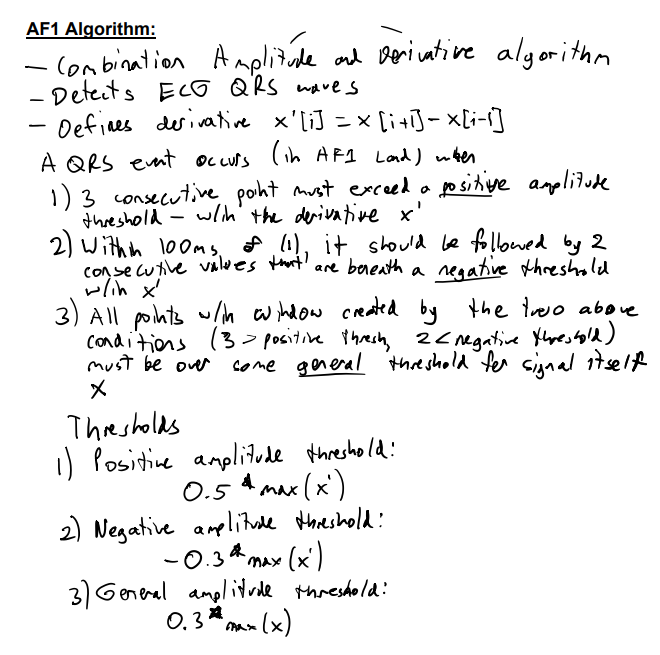 AF1 Algorithm:
- Combination Amplitude and Derivative algorithm
- Detects ECG QRS waves
- Defines derivative x'[i] = x[i+1]-x[i-1]
A QRS event occurs (in AF1 Land) when
1) 3 consecutive point must exceed a positive amplitude
threshold - w/in the derivative x'
2) Within 100ms of (1), it should be followed by 2
consecutive values that are beneath a negative threshold
w/in x'
3) All points w/in window created by the two above
conditions (3 > positive thresh, 2 < negative threshold)
must be over some general threshold for signal itself
x
Thresholds
1) Positive amplitude threshold:
0.5 * max(x')
2) Negative amplitude threshold:
-0.3 * max(x')
3) General amplitude threshold:
0.3 * max(x)